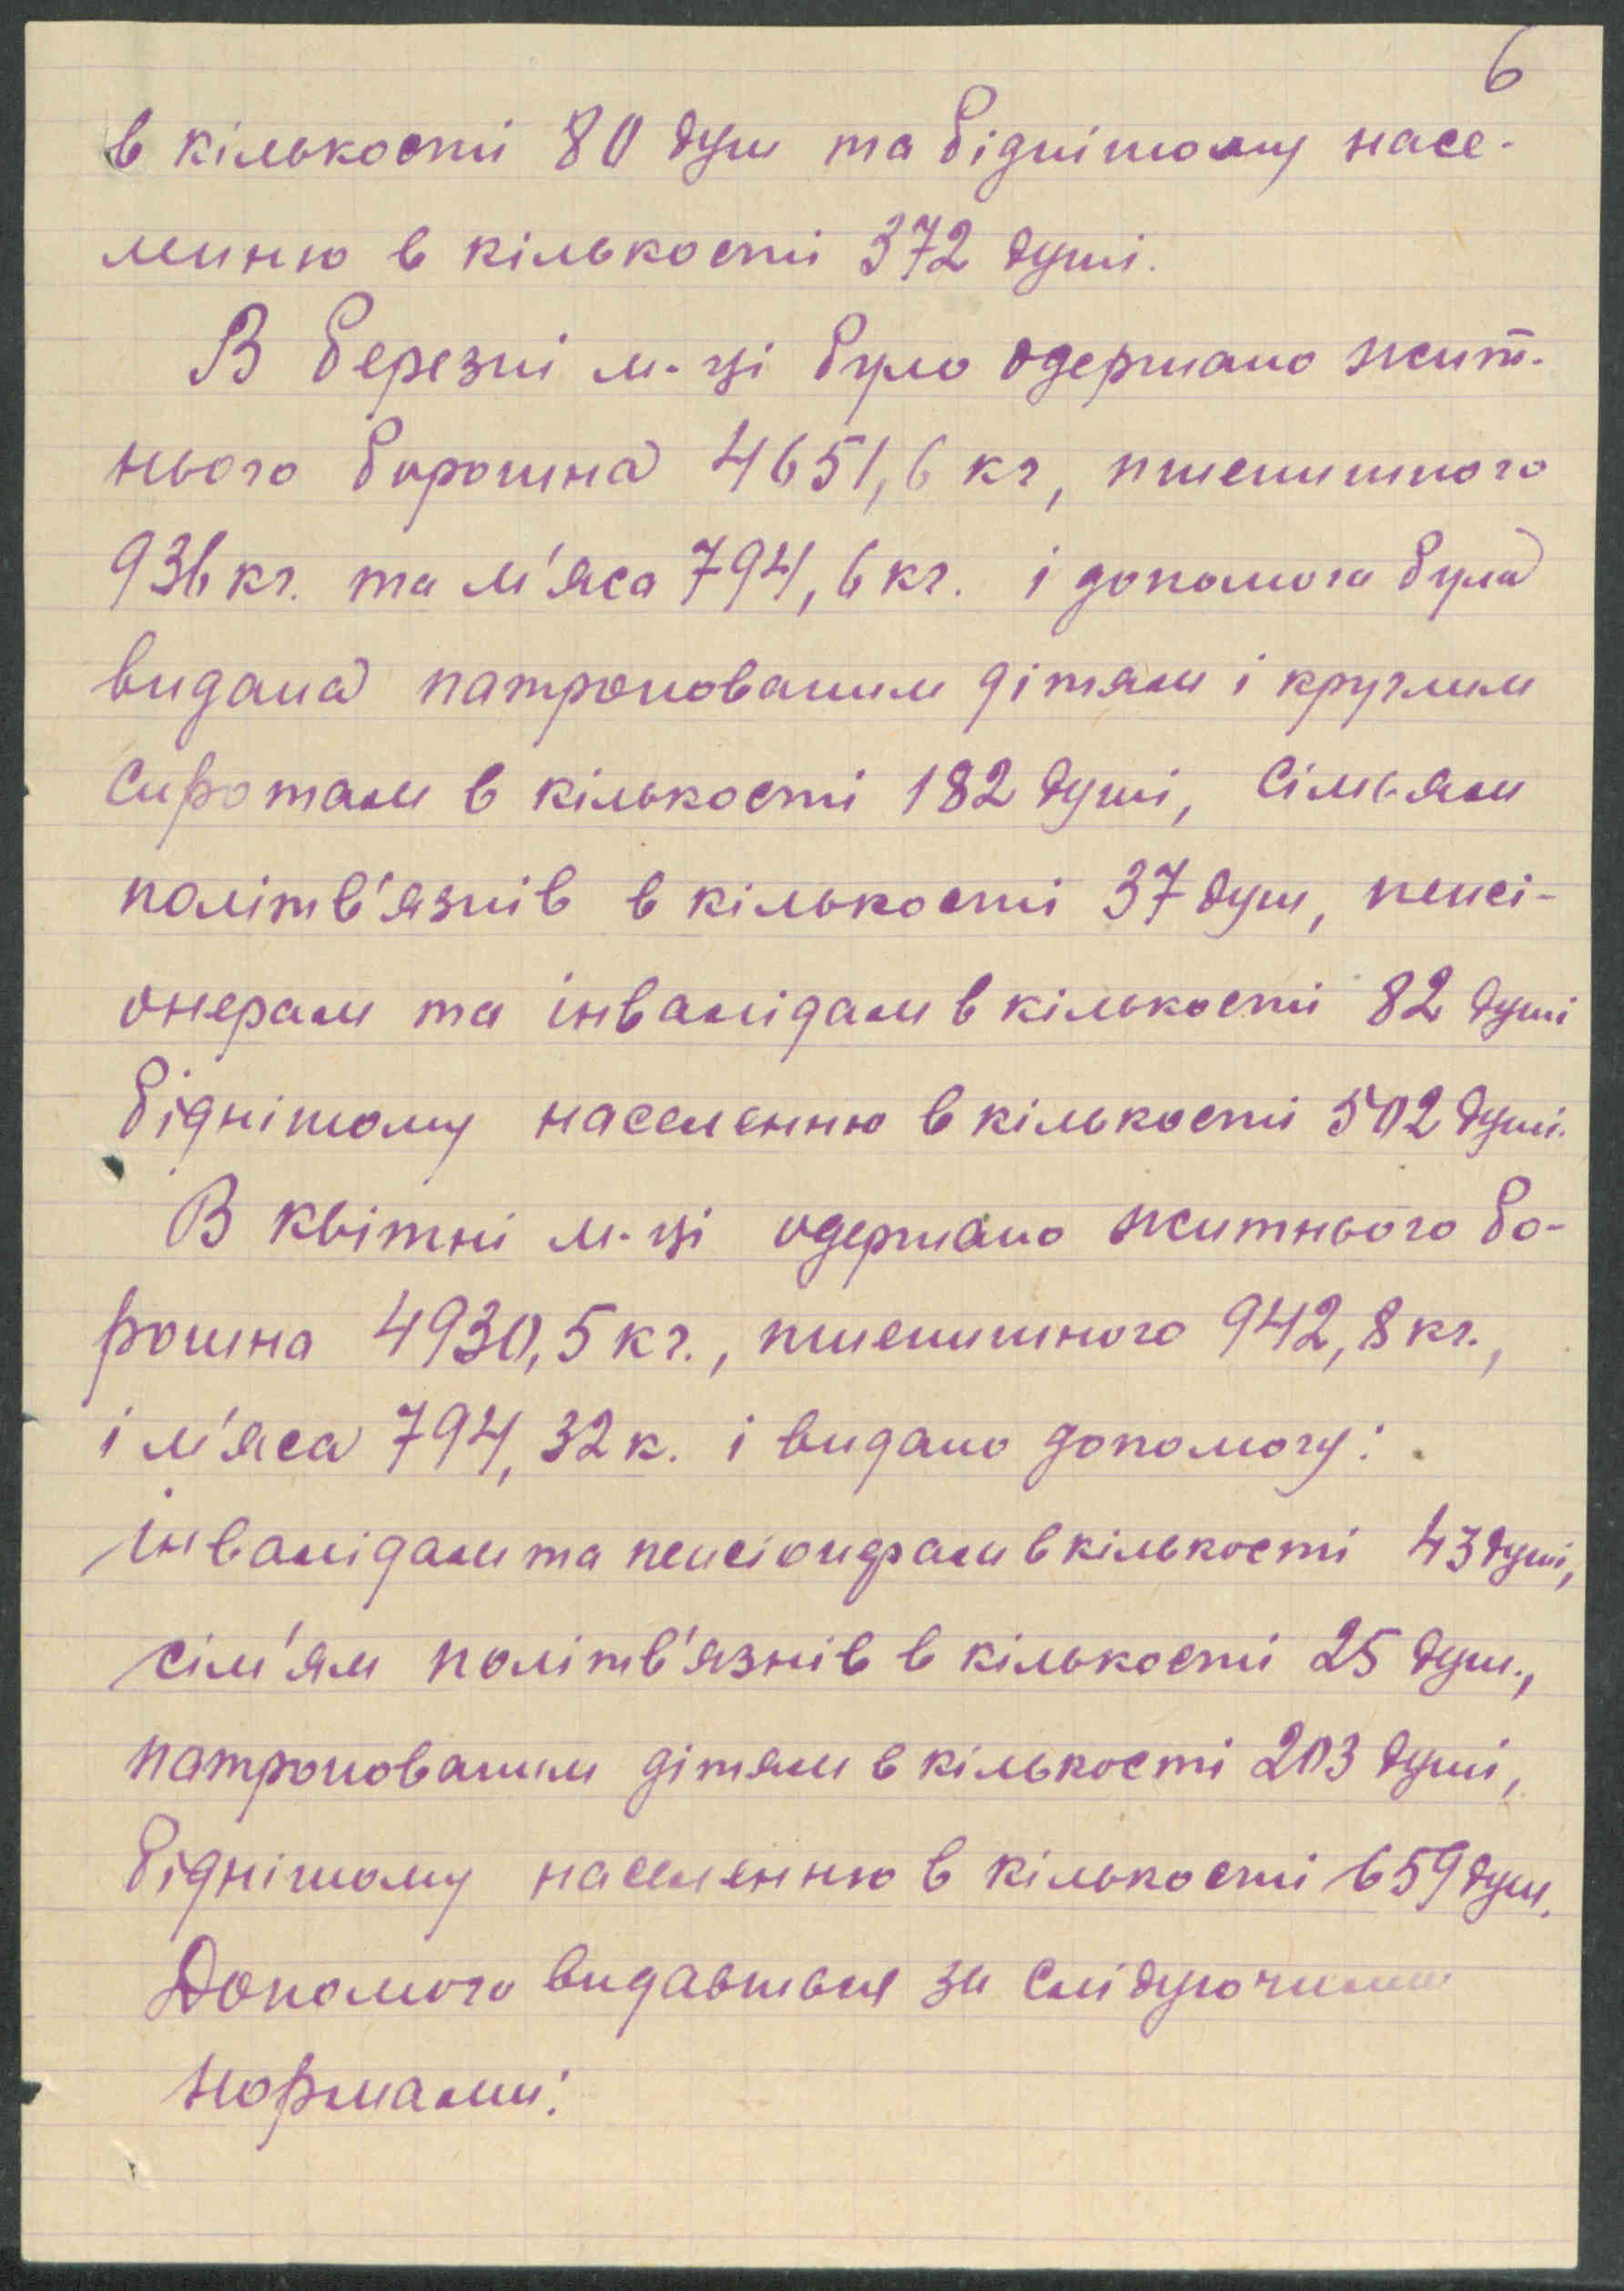 6
в кількості 80 душ та біднішому насе-
линню в кількості 372 душі.
В березні м-ці було одержано жит-
нього борошна 4651,6 кг, пшенишного
936 кг. та м'яса 794,6 кг. і допомога була
видана патронованим дітям і круглим
сиротам в кількості 182 душі, сімьям
політв'язнів в кількості 37 душ, пенсі-
онерам та інвалідам в кількості 82 душі
біднішому населенню в кількості 502 душі.
В квітні м-ці одержано житнього бо-
рошна 4930,5 кг., пшенишного 942,8 кг.,
і м'яса 794,32 к. і видано допомогу:
інвалідам та пенсіонерам в кількості 43 душі,
сім'ям політв'язнів в кількості 25 душ.,
патронованим дітям в кількості 203 душі,
біднішому населенню в кількості 659 душ.
Допомога видавшься за слідуючими
нормами: